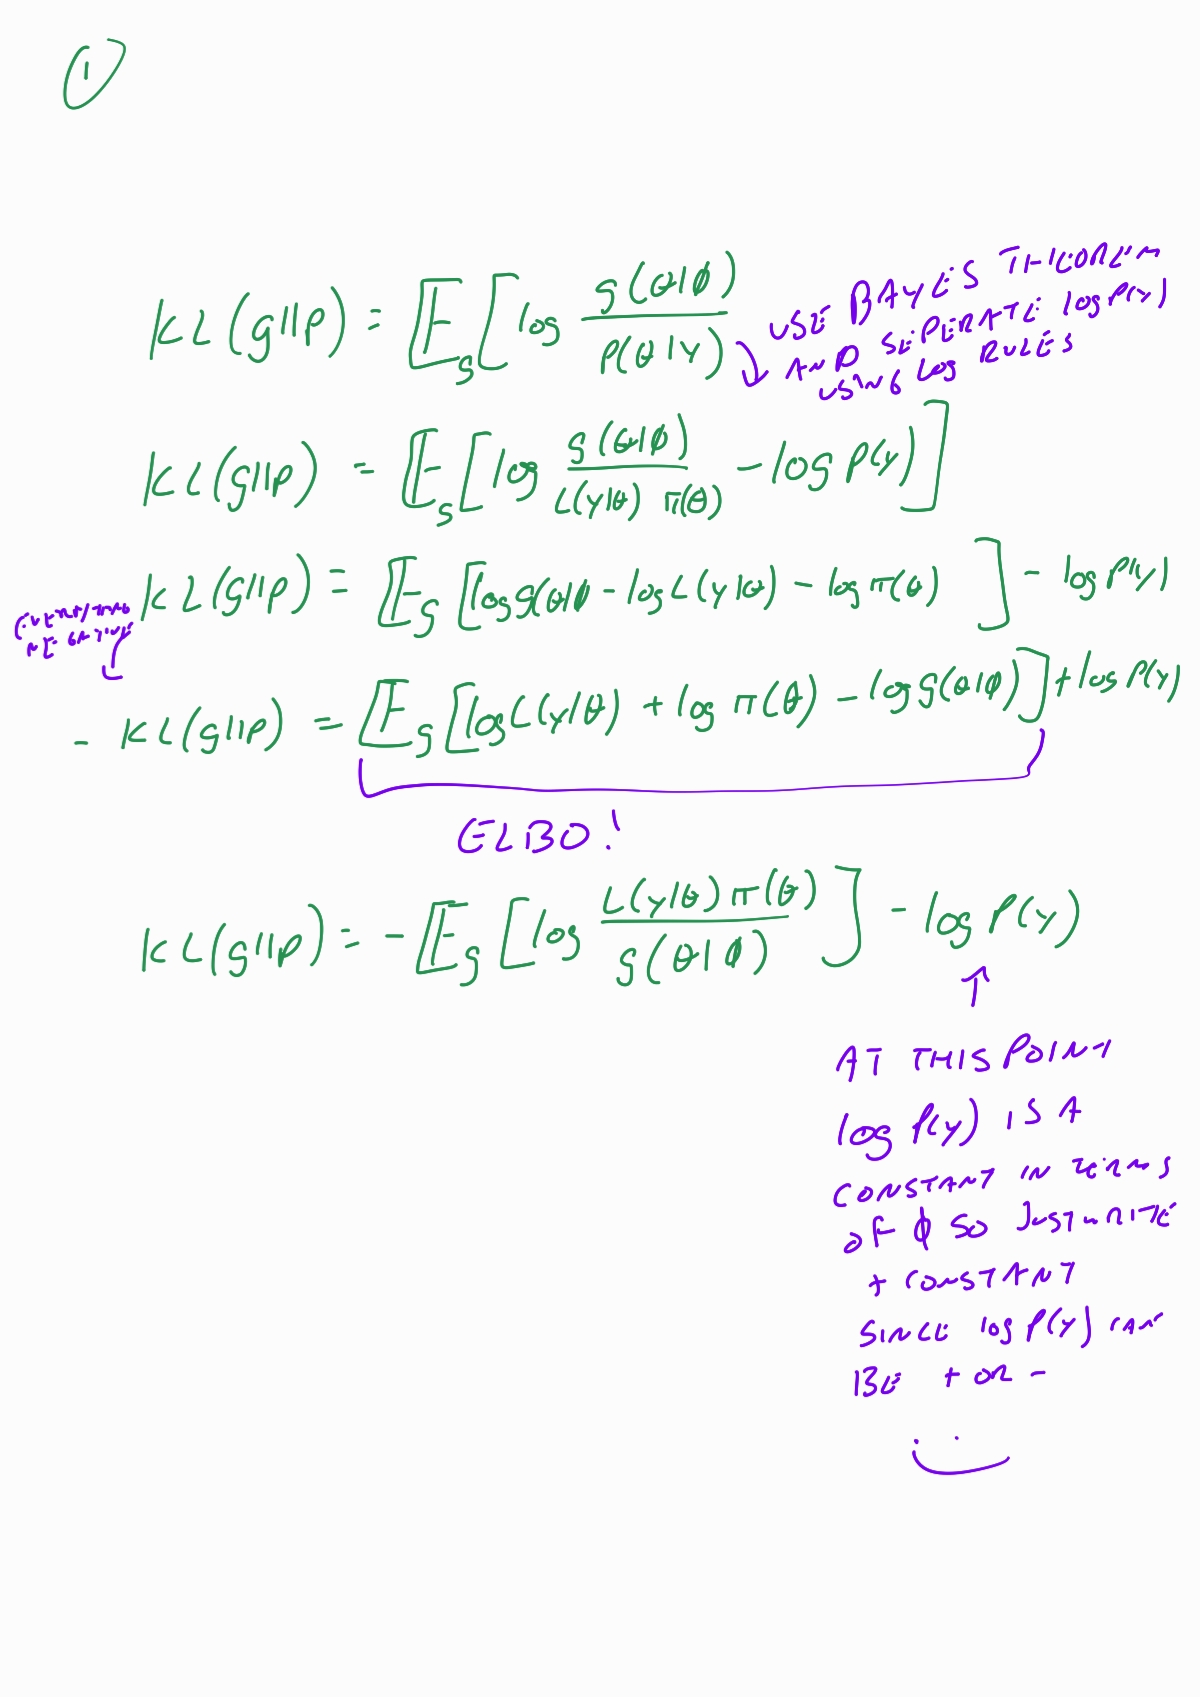 ①
KL(g||p) = E_g[ log g(θ|ϕ) / P(θ|y)
USE BAYES THEOREM
AND SEPERATE log P(y)
USING LOG RULES
KL(g||p) = E_g[ log g(θ|ϕ) / L(y|θ) π(θ) - log P(y) ]
KL(g||p) = E_g [log g(θ|ϕ - log L(y|θ) - log π(θ) ] - log P(y)
(EVERYTHING
NEGATIVE
- KL(g||p) = E_g [log L(y|θ) + log π(θ) - log g(θ|ϕ)] + log P(y)
ELBO!
KL(g||p) = - E_g [ log L(y|θ) π(θ) / g(θ|ϕ) ] - log P(y)
↑
AT THIS POINT
log P(y) IS A
CONSTANT IN TERMS
OF ϕ SO JUST WRITE
+ CONSTANT
SINCE log P(y) CAN
BE + OR -